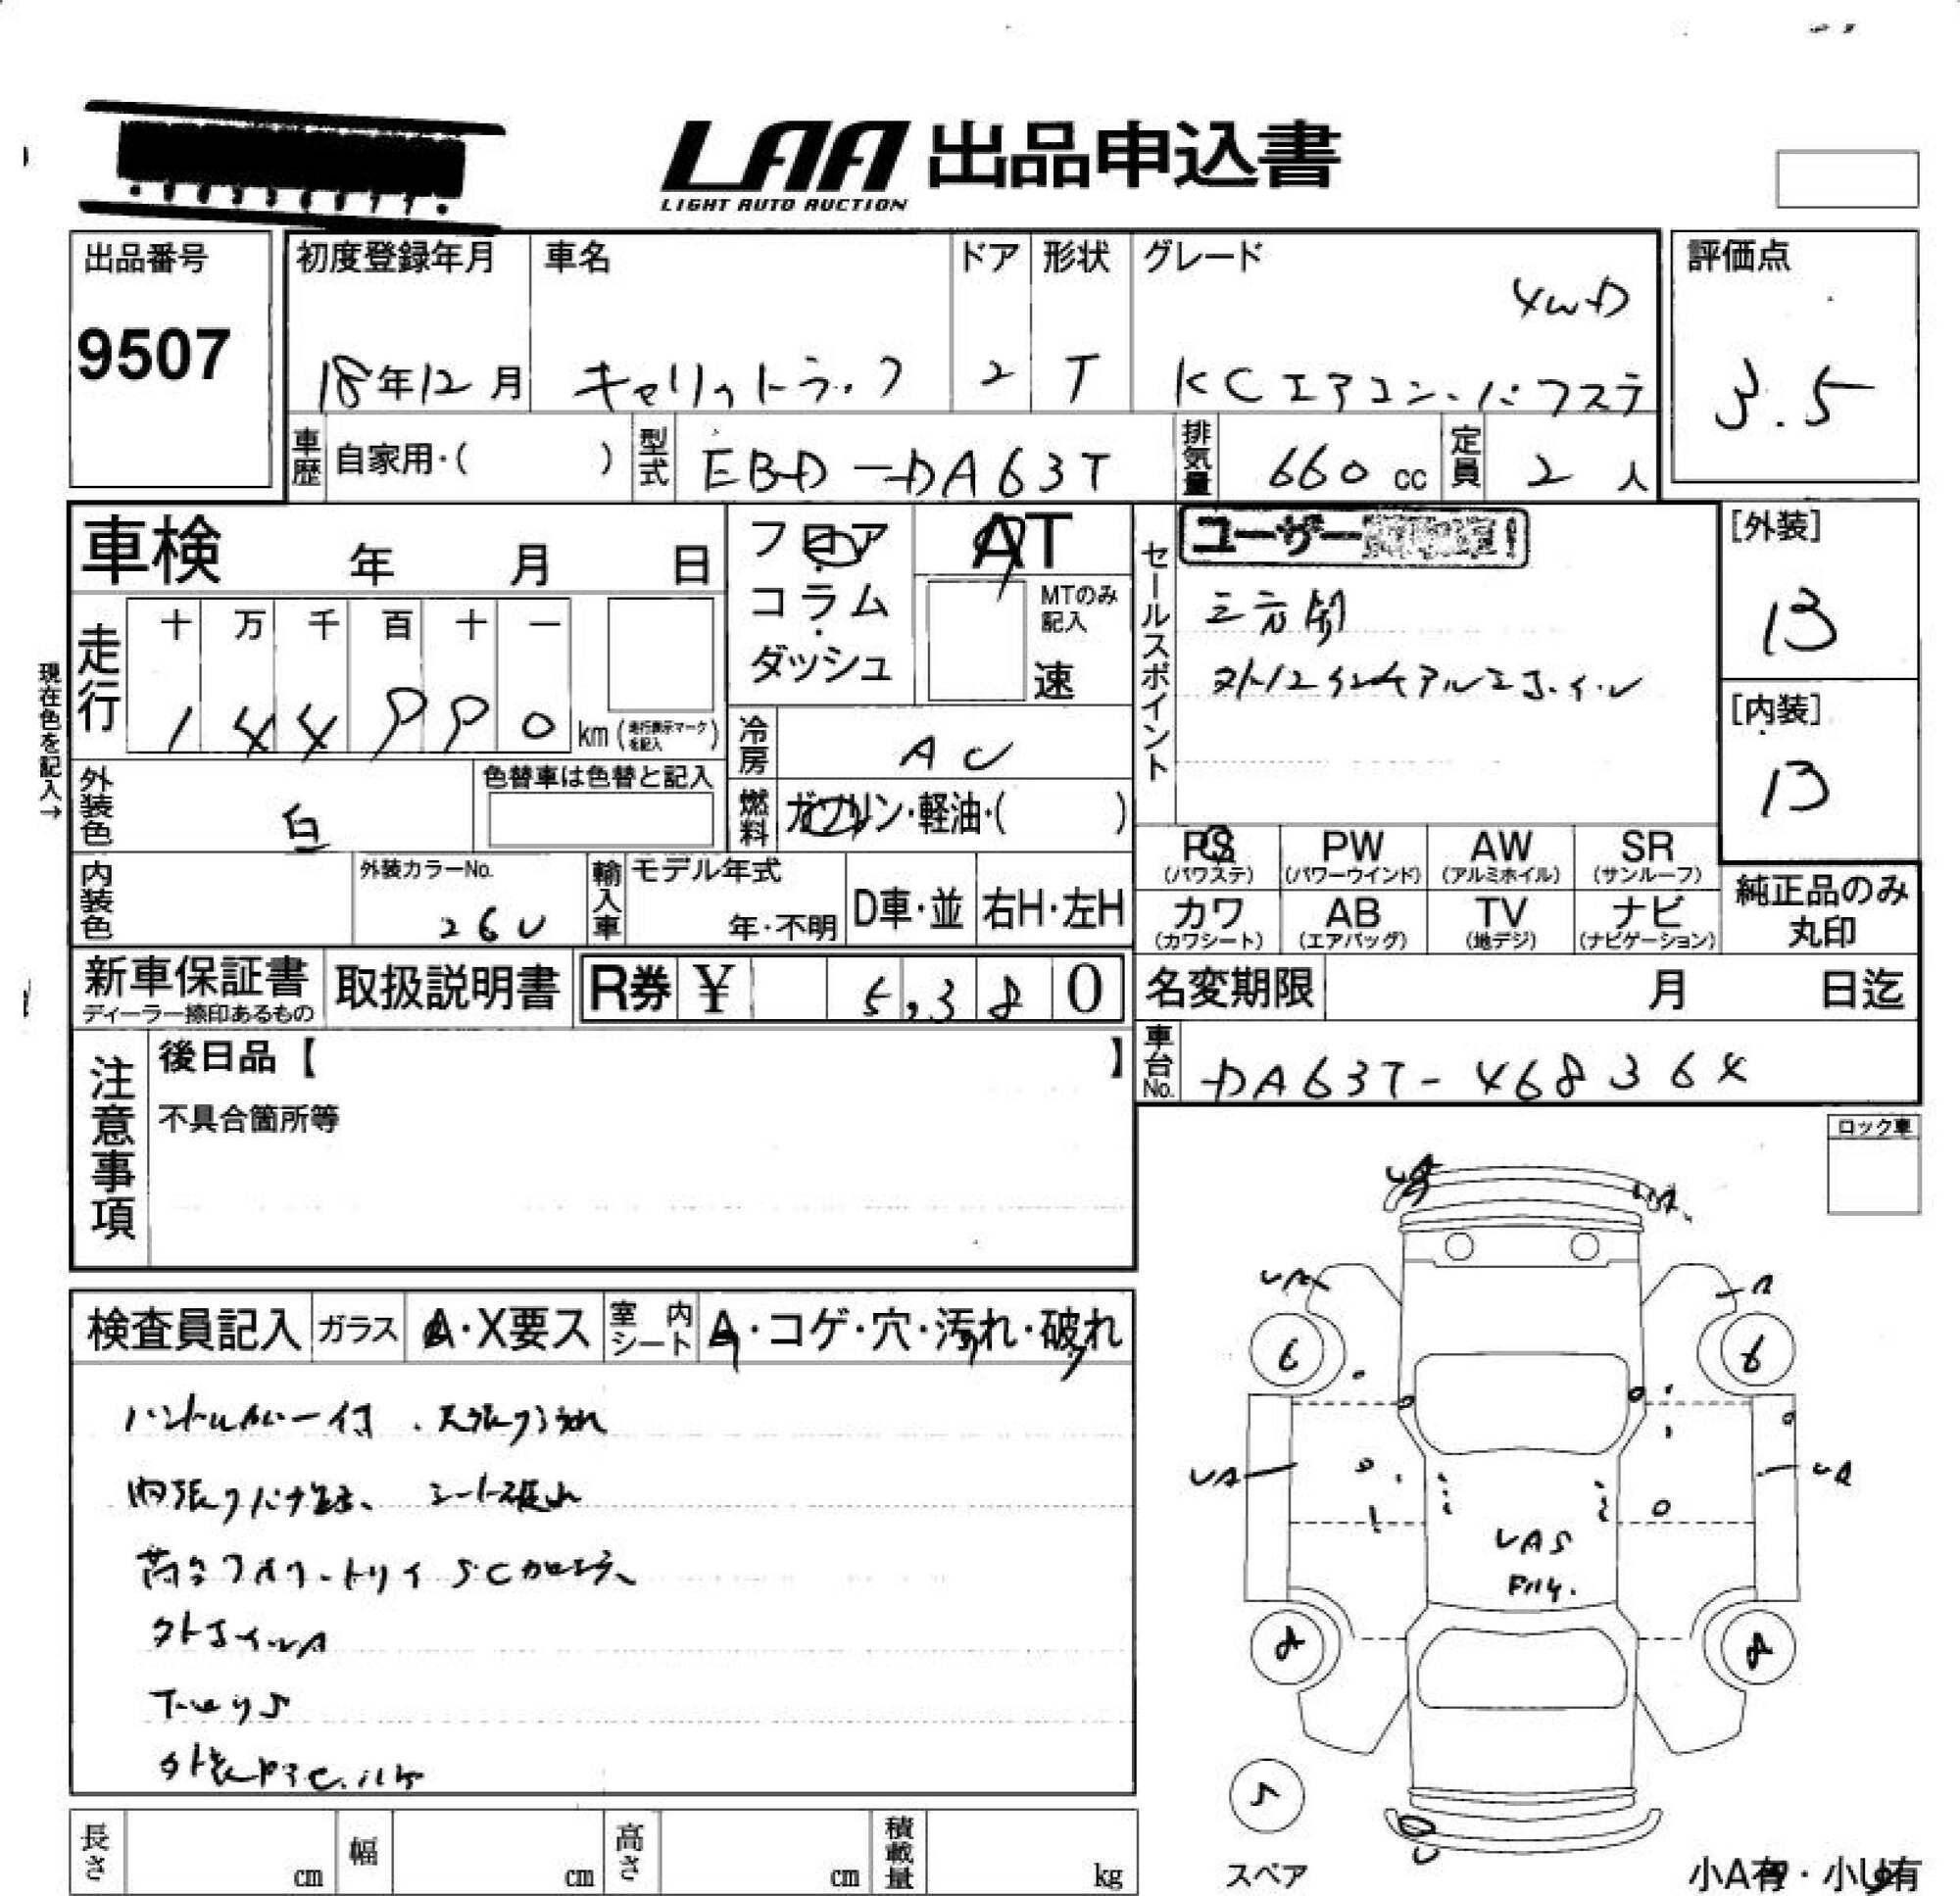 LAA 出品申込書
LIGHT AUTO AUCTION
出品番号
9507
初度登録年月
18年12月
車名
キャリイトラック
ドア
2
形状
T
グレード
4WD
KCエアコン・パワステ
評価点
3.5
車歴 自家用・( )
型式 EBD-DA63T
排気量 660 cc
定員 2 人
車検 年 月 日
フロア・コラム・ダッシュ
AT
MTのみ記入
速
現在色を記入→
走行
十 万 千 百 十 一
1 4 4 9 9 0 km (走行表示マークを記入)
冷房 AC
燃料 ガソリン・軽油・( )
外装色 白
色替車は色替と記入
内装色
外装カラーNo.
26U
輸入車
モデル年式
年・不明
D車・並 右H・左H
セールスポイント
ユーザー
三方開
社外12インチアルミホイール
[外装]
B
[内装]
B
PS (パワステ) PW (パワーウインド) AW (アルミホイル) SR (サンルーフ)
カワ (カワシート) AB (エアバッグ) TV (地デジ) ナビ (ナビゲーション)
純正品のみ丸印
新車保証書
ディーラー捺印あるもの
取扱説明書
R券 ¥ 5,380
名変期限 月 日迄
車台No. DA63T-468364
注意事項
後日品【 】
不具合箇所等
ロック車
検査員記入 ガラス A・X要ス 室内シート A・コゲ・穴・汚れ・破れ
ハンドルカバー付
シート破れ
下回りS
UA
UA
UA
A
6
6
UA
UA
UAS
スペア
5
U
小A有・小U有
長さ cm
幅 cm
高さ cm
積載量 kg